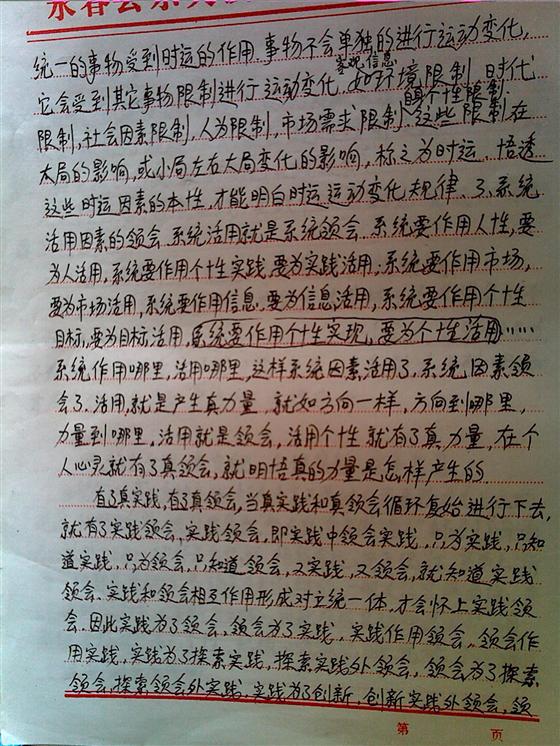 永春县
统一的事物受到时运的作用.事物不会单独的进行运动变化,
它会受到其它事物限制进行运动变化,如环境限制,时代
客观,信息
酉个性限制.
限制,社会因素限制,人为限制,市场需求限制,这些限制在
大局的影响,或小局左右大局变化的影响,标之为时运.悟透
这些时运因素的本性,才能明白时运运动变化规律了.系统
活用因素的领会.系统活用就是系统领会.系统要作用人性,要
为人活用,系统要作用个性实践,要为实践活用,系统要作用市场,
要为市场活用,系统要作用信息.要为信息活用,系统要作用个性
目标,要为目标活用,系统要作用个性实现,要为个性活用……
系统作用哪里,活用哪里,这样系统因素活用了.系统因素领
会了.活用,就是产生真力量.就如方向一样,方向到哪里,
力量到哪里,活用就是领会,活用个性就有了真力量,在个
人心灵就有了真领会,就明悟真的力量是怎样产生的.
有了真实践,有了真领会,当真实践和真领会循环复始进行下去,
就有了实践领会,实践领会,即实践中领会实践.只为实践,只知
道实践,只为领会,只知道领会,又实践,又领会,就知道实践
领会.实践和领会相互作用形成对立统一体,才会怀上实践领
会.因此实践为了领会,领会为了实践,实践作用领会,领会作
用实践,实践为了探索实践,探索实践外领会,领会为了探索
领会,探索领会外实践,实践为了创新,创新实践外领会,领
第 页